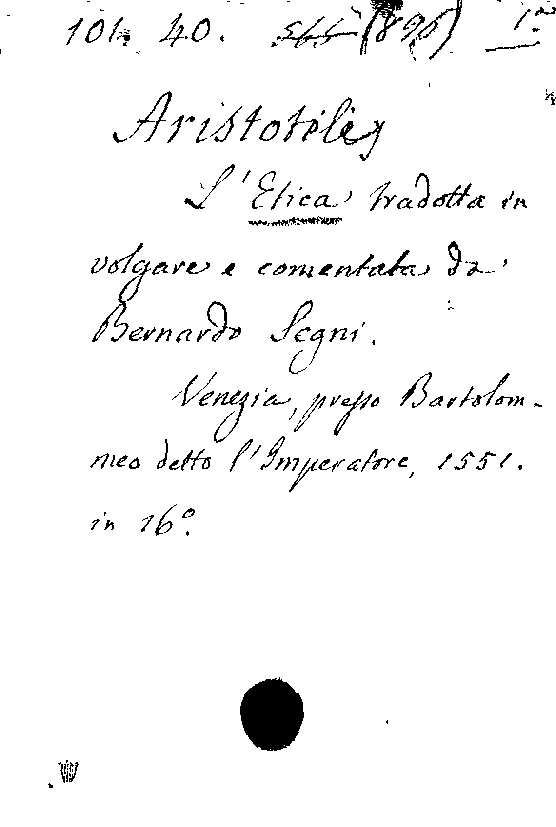 101. 40. 566 (896) 1.a
Aristotiles
L'Etica tradotta in
volgare e comentata da
Bernardo Segni.
Venezia, presso Bartolom-
meo detto l'Imperatore, 1551.
in 16º.